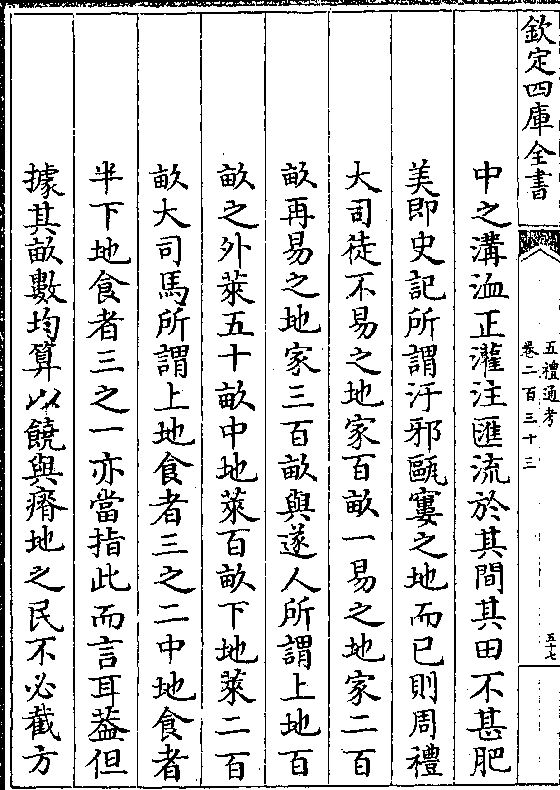 欽定四庫全書
五禮通考
卷二百三十三
五十七
中之溝洫正灌注匯流於其間其田不甚肥
美即史記所謂汙邪甌窶之地而已則周禮
大司徒不易之地家百畝一易之地家二百
畝再易之地家三百畝與遂人所謂上地百
畝之外萊五十畝中地萊百畝下地萊二百
畝大司馬所謂上地食者三之二中地食者
半下地食者三之一亦當指此而言耳葢但
據其畝數均算以饒與瘠地之民不必截方